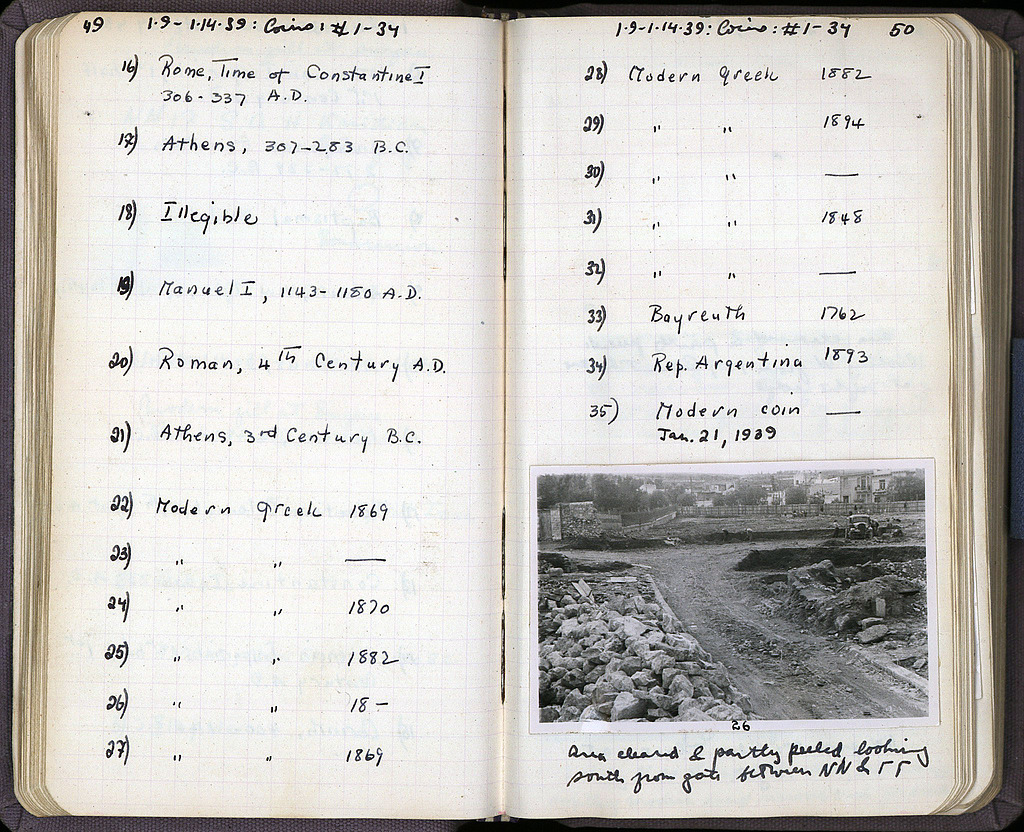 49 1.9-1.14.39: Coins: # 1-34
16) Rome, Time of Constantine I
306-337 A.D.
17) Athens, 307-283 B.C.
18) Illegible
19) Manuel I, 1143-1180 A.D.
20) Roman, 4th Century A.D.
21) Athens, 3rd Century B.C.
22) Modern Greek 1869
23) " " —
24) " " 1870
25) " " 1882
26) " " 18-
27) " " 1869
1.9-1.14.39: Coins: # 1-34 50
28) Modern Greek 1882
29) " " 1894
30) " " —
31) " " 1848
32) " " —
33) Bayreuth 1762
34) Rep. Argentina 1893
35) Modern coin —
Jan. 21, 1939
26
Area cleared & partly peeled, looking
south from gate between NN & ΓΓ